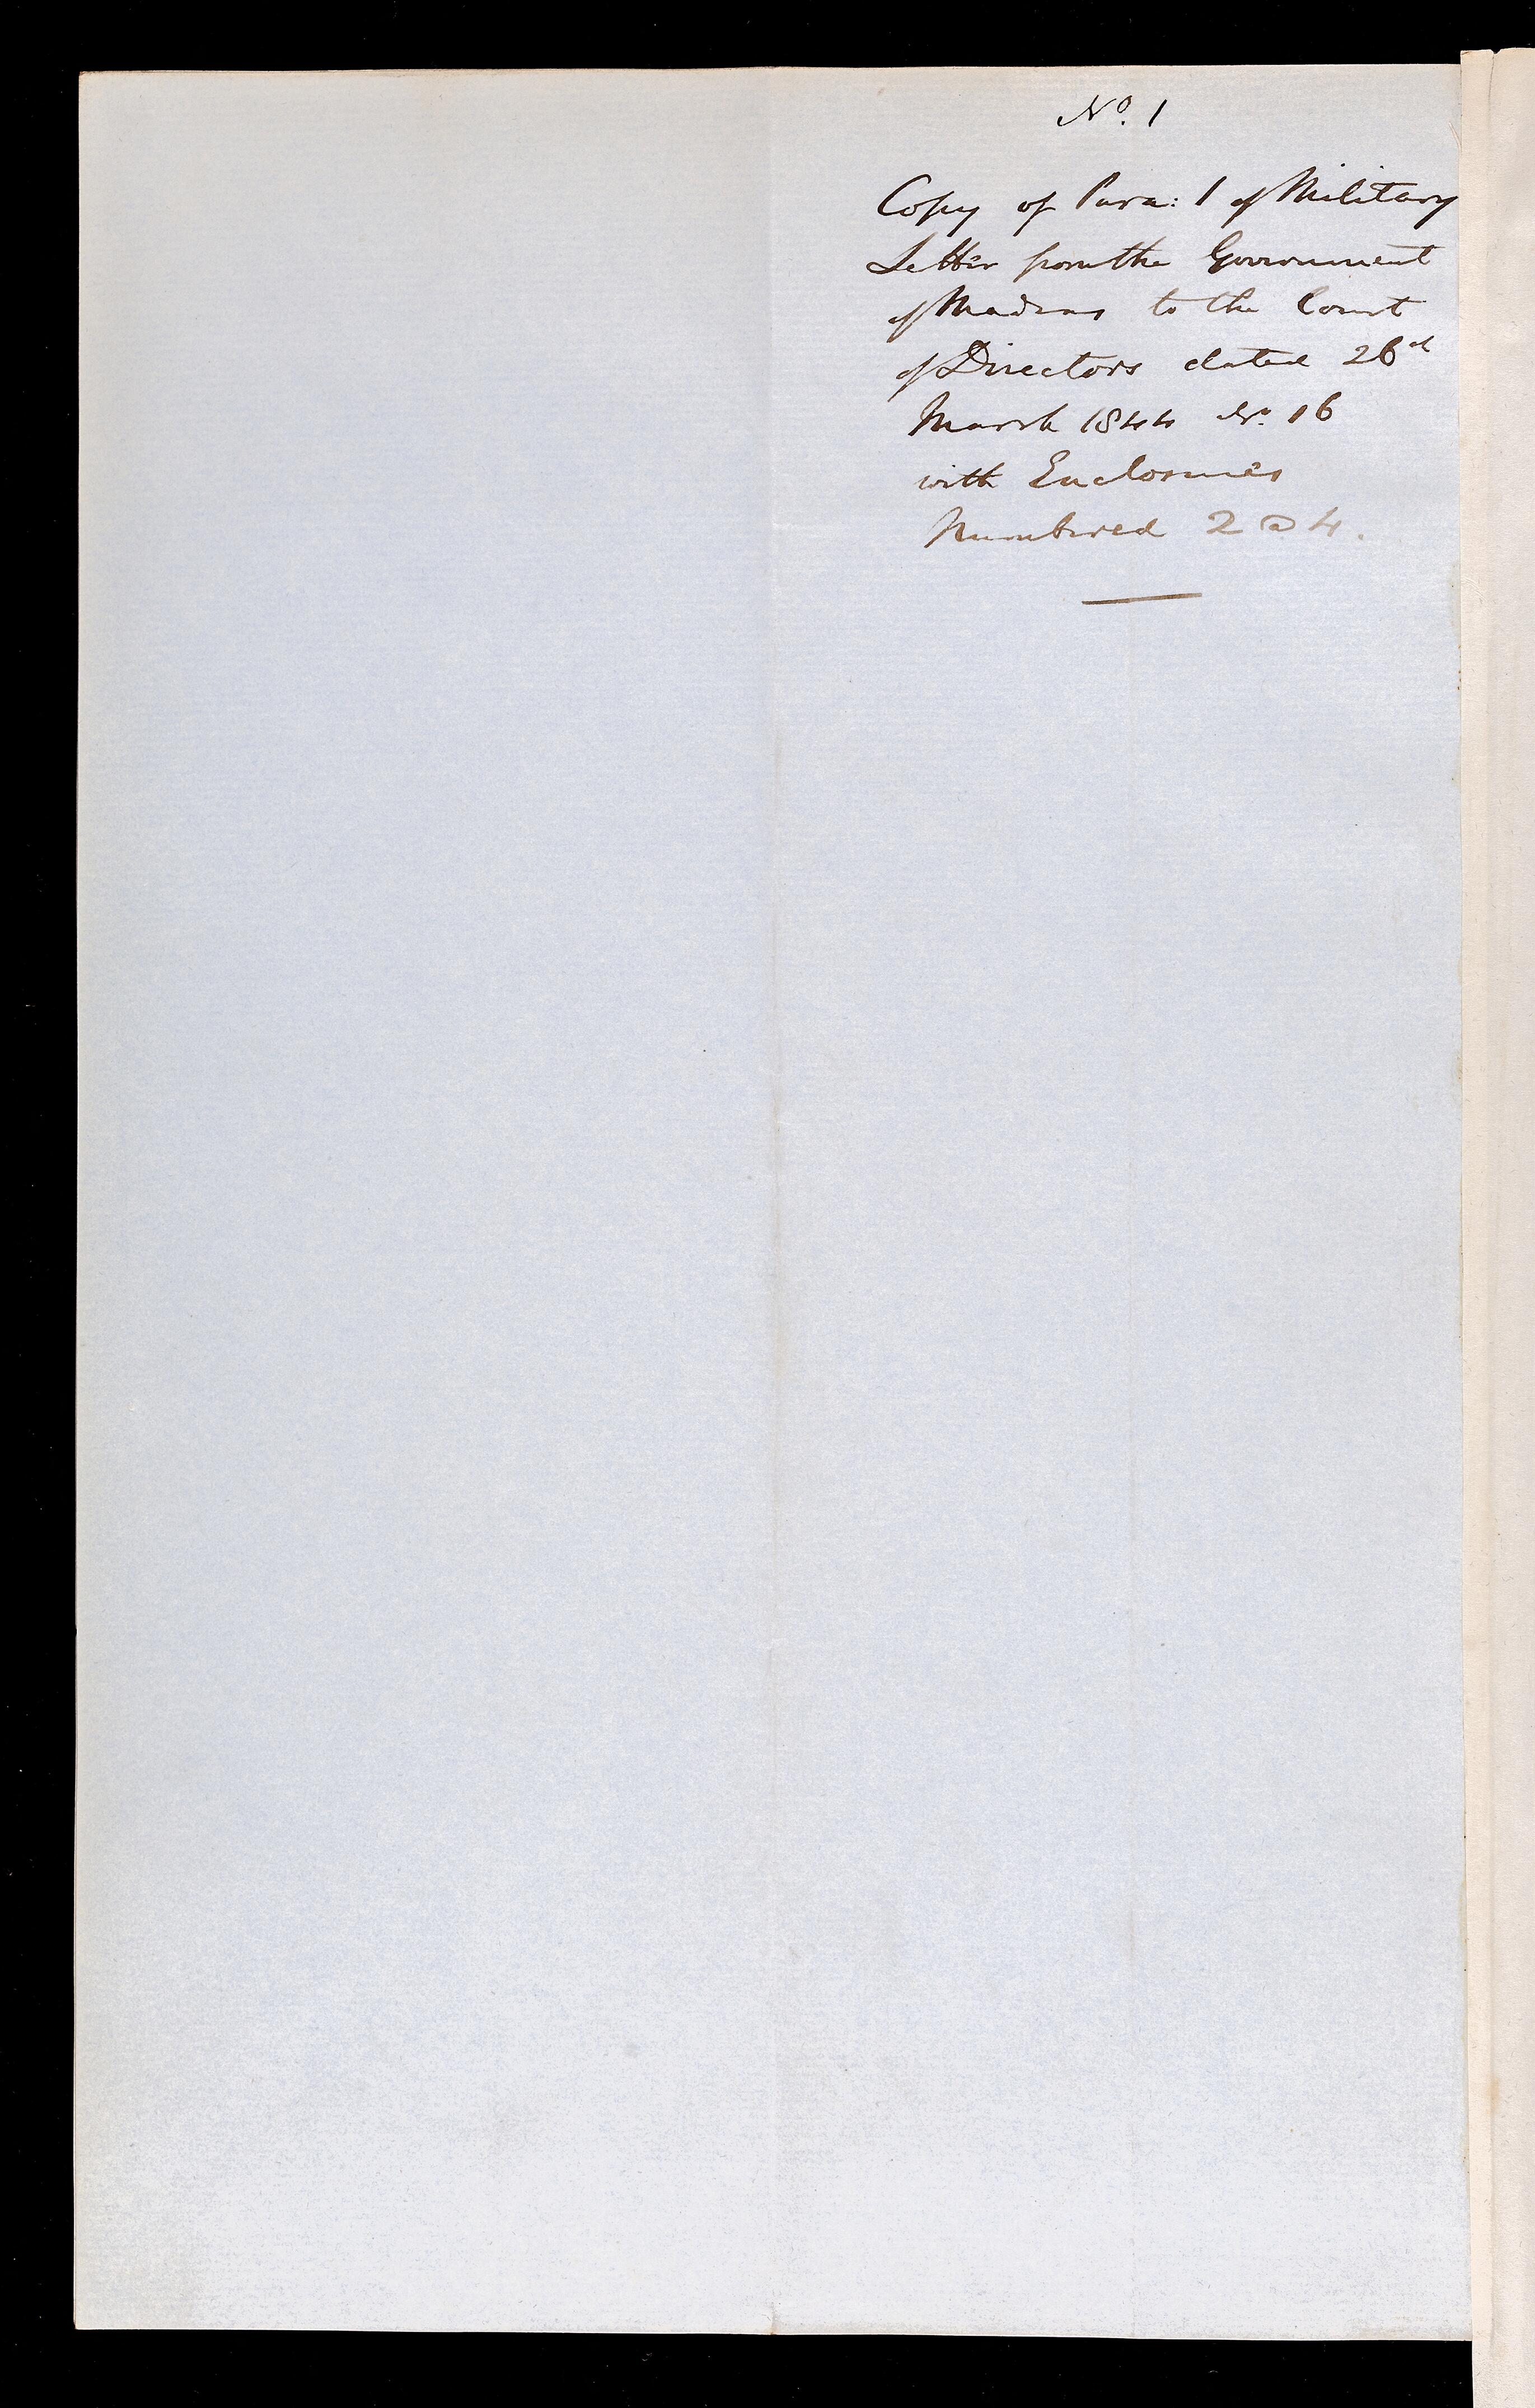 No. 1
Copy of Para: 1 of Military
Letter from the Government
of Madras to the Court
of Directors dated 26th
March 1844 No. 16
with Enclosures
Numbered 2 @ 4.